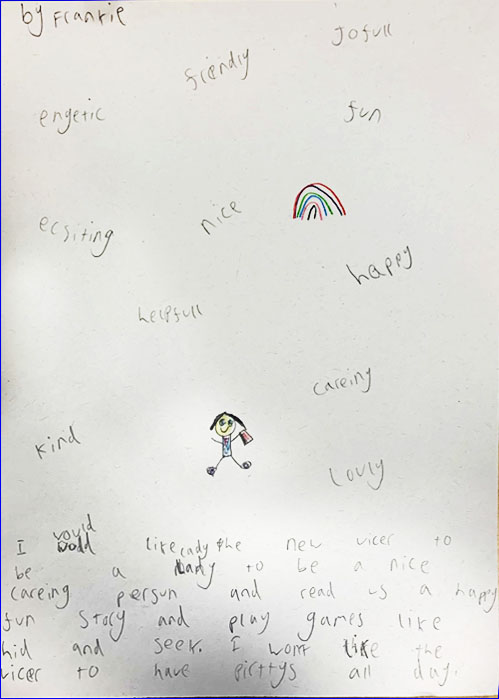 by Frankie
Jofull
friendly
engetic
fun
ecsiting
nice
happy
helpfull
careing
kind
lovly
would
I like the new vicer to
be a to be a nice
careing persun and read us a happy
fun story and play games like
hid and seek. I wont the
vicer to have pirttys all day.